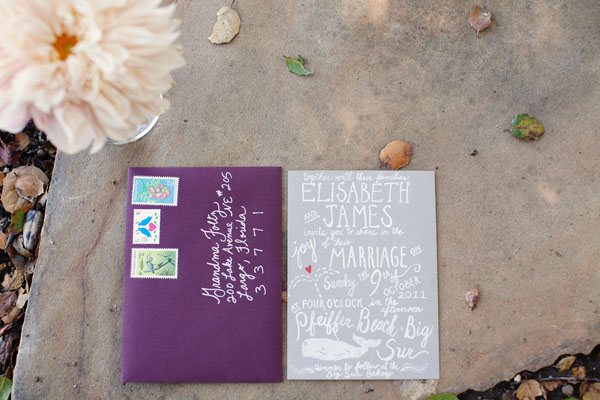 Grandma Foltz
200 Lake Avenue NE #205
Largo, Florida
33771
together with their families
ELISABETH
AND JAMES
invite you to share in the
joy of their MARRIAGE ON
Sunday, THE 9th OF
OCTOBER 2011
AT FOUR O'CLOCK in the afternoon
Pfeiffer Beach · Big
Sur
Dinner to follow at the
Big Sur Bakery